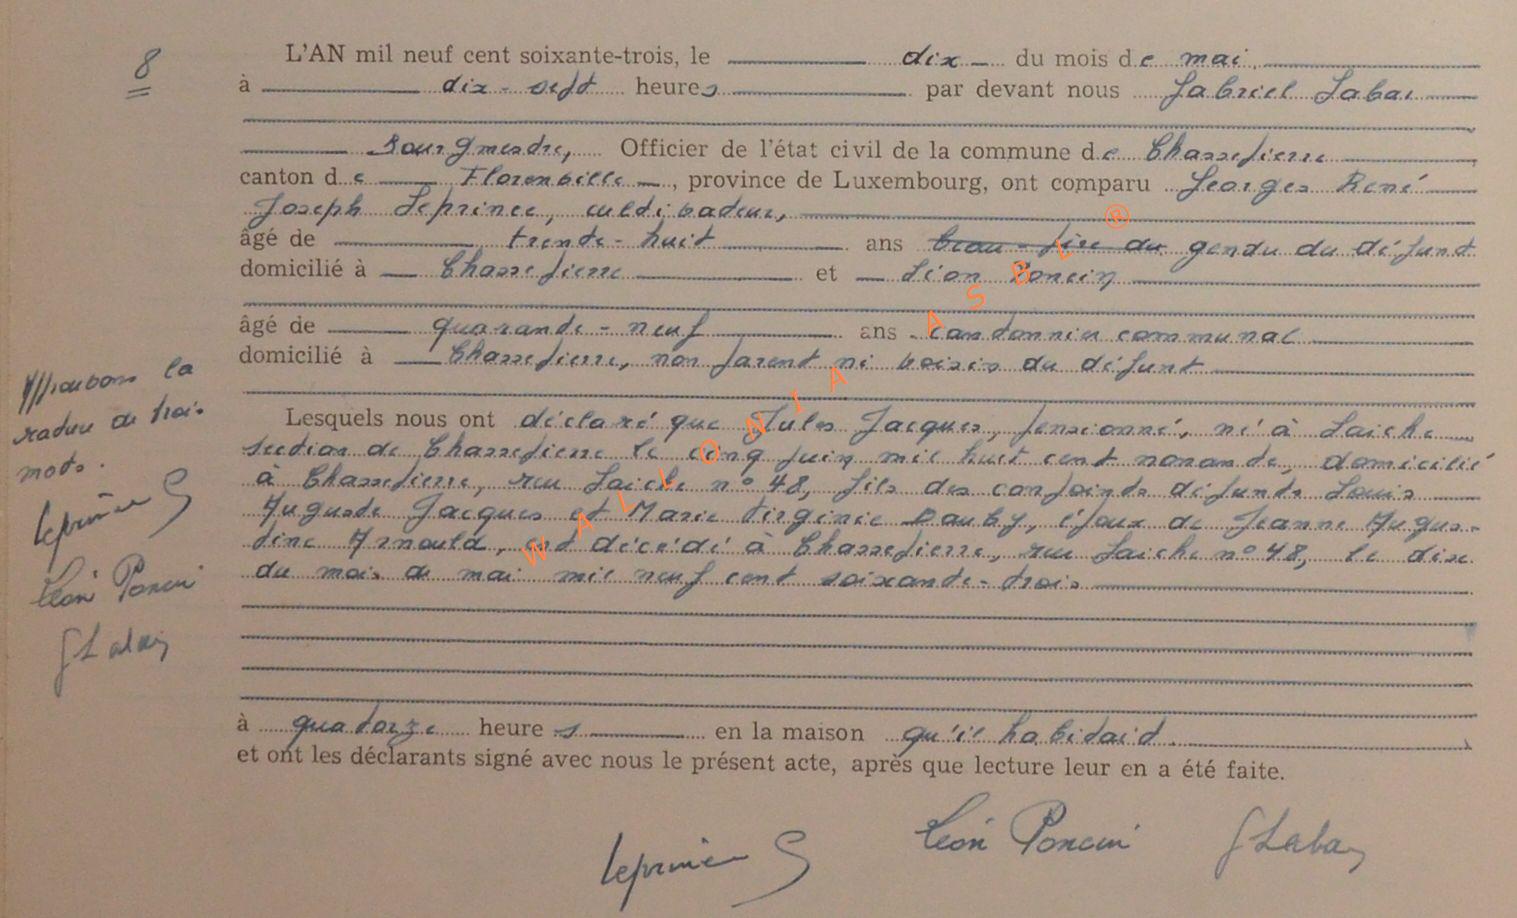 8
L'AN mil neuf cent soixante-trois, le dix du mois de mai
à dix-sept heures par devant nous Gabriel Labai
Bourgmestre, Officier de l'état civil de la commune de Chassepierre
canton de Florenville, province de Luxembourg, ont comparu Georges René
Joseph Leprince, cultivateur,
âgé de trente-huit ans beau-fils du gendre du défunt
domicilié à Chassepierre et Léon Poncin
âgé de quarante-neuf ans cantonnier communal
domicilié à Chassepierre, non parent ni voisin du défunt
Lesquels nous ont déclaré que Jules Jacques, pensionné, né à Laiche
section de Chassepierre le cinq juin mil huit cent nonante, domicilié
à Chassepierre, rue Laiche n° 48, fils des conjoints défunts Louis
Auguste Jacques et Marie Virginie Dauby, époux de Jeanne Augus-
tine Arnould, est décédé à Chassepierre, rue Laiche n° 48, le dix
du mois de mai mil neuf cent soixante-trois
à quatorze heures en la maison qu'il habitait.
et ont les déclarants signé avec nous le présent acte, après que lecture leur en a été faite.
Leprince G Léon Poncin G Labai
Approuvons la
rature de trois
mots.
Leprince G
Léon Poncin
G Labai
WALLONIA ASBL ®